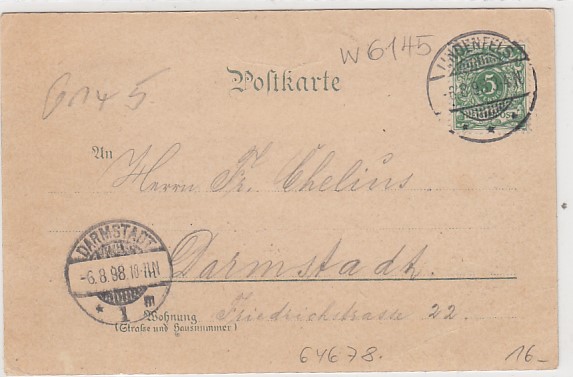 W 6145
LINDENFELS
5
Postkarte
6145
An
Herrn Fr. Chelius
DARMSTADT
-6.8.98.10-11N
* 1 m
Darmstadt.
Wohnung
(Straße und Hausnummer)
Friedrichstrasse 22.
64678.
16-